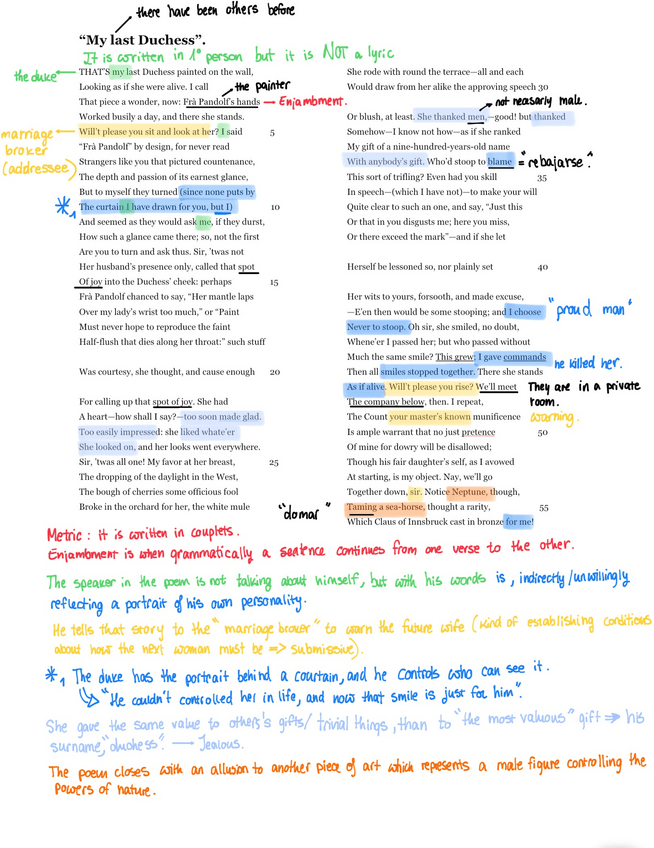 there have been others before
"My last Duchess".
It is written in 1º person but it is NOT a lyric
the duke
THAT'S my last Duchess painted on the wall,
Looking as if she were alive. I call
the painter
That piece a wonder, now: Frà Pandolf's hands
Enjambment.
Worked busily a day, and there she stands.
marriage broker (addressee)
Will't please you sit and look at her? I said 5
"Frà Pandolf" by design, for never read
Strangers like you that pictured countenance,
The depth and passion of its earnest glance,
But to myself they turned (since none puts by
*1
The curtain I have drawn for you, but I) 10
And seemed as they would ask me, if they durst,
How such a glance came there; so, not the first
Are you to turn and ask thus. Sir, 'twas not
Her husband's presence only, called that spot
Of joy into the Duchess' cheek: perhaps 15
Frà Pandolf chanced to say, "Her mantle laps
Over my lady's wrist too much," or "Paint
Must never hope to reproduce the faint
Half-flush that dies along her throat:" such stuff
Was courtesy, she thought, and cause enough 20
For calling up that spot of joy. She had
A heart—how shall I say?—too soon made glad.
Too easily impressed: she liked whate'er
She looked on, and her looks went everywhere.
Sir, 'twas all one! My favor at her breast, 25
The dropping of the daylight in the West,
The bough of cherries some officious fool
Broke in the orchard for her, the white mule
She rode with round the terrace—all and each
Would draw from her alike the approving speech 30
not necesarly male.
Or blush, at least. She thanked men,—good! but thanked
Somehow—I know not how—as if she ranked
My gift of a nine-hundred-years-old name
With anybody's gift. Who'd stoop to blame
= "rebajarse".
This sort of trifling? Even had you skill 35
In speech—(which I have not)—to make your will
Quite clear to such an one, and say, "Just this
Or that in you disgusts me; here you miss,
Or there exceed the mark"—and if she let
Herself be lessoned so, nor plainly set 40
Her wits to yours, forsooth, and made excuse,
—E'en then would be some stooping; and I choose
"proud man"
Never to stoop. Oh sir, she smiled, no doubt,
Whene'er I passed her; but who passed without
Much the same smile? This grew; I gave commands
he killed her.
Then all smiles stopped together. There she stands
As if alive. Will't please you rise? We'll meet
They are in a private room.
The company below, then. I repeat,
The Count your master's known munificence
warning.
Is ample warrant that no just pretence 50
Of mine for dowry will be disallowed;
Though his fair daughter's self, as I avowed
At starting, is my object. Nay, we'll go
Together down, sir. Notice Neptune, though,
"domar"
Taming a sea-horse, thought a rarity, 55
Which Claus of Innsbruck cast in bronze for me!
Metric: it is written in couplets.
Enjambment is when grammatically a sentence continues from one verse to the other.
The speaker in the poem is not talking about himself, but with his words is, indirectly/unwillingly
reflecting a portrait of his own personality.
He tells that story to the "marriage brouer" to warn the future wife (kind of establishing conditions
about how the next woman must be => submissive).
*1 The duke has the portrait behind a courtain, and he controls who can see it.
"He couldn't controlled her in life, and now that smile is just for him".
She gave the same value to others's gifts/ trivial things, than to "the most valuous" gift => his
surname, "duchess". — Jealous.
The poem closes with an allusion to another piece of art which represents a male figure controlling the
Powers of nature.